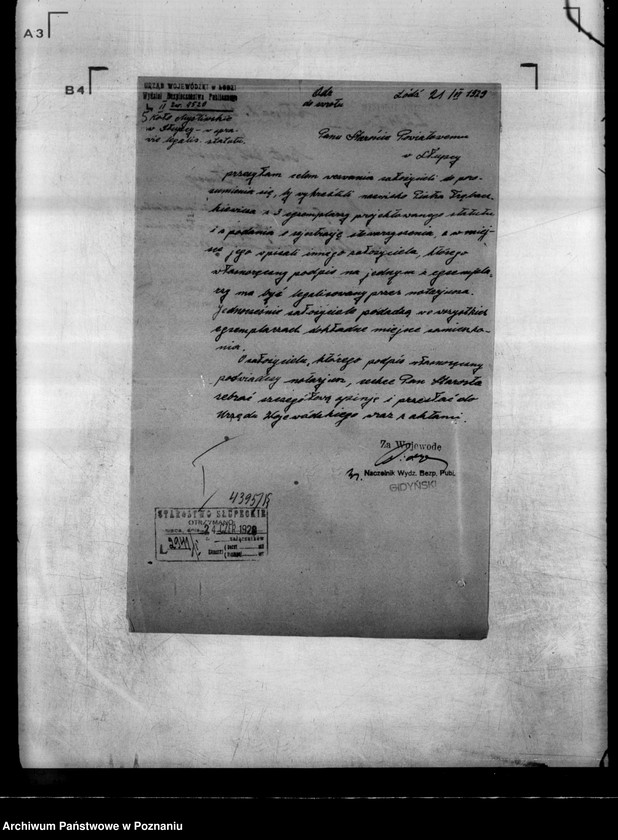 A3
B4
URZĄD WOJEWÓDZKI w ŁODZI
Wydział Bezpieczeństwa Publicznego
L. II
Koło Myśliwskie
w Słupcy - w spra-
wie legaliz. statutu.
Odp.
do zwrotu
Łódź 21 VI 1929
Panu Staroście Powiatowemu
w Słupcy
przesyłam celem wezwania założycieli do poro-
zumienia się, by wykreślili nazwisko Piotra
z 3 egzemplarzy projektowanego statutu
i z podania o rejestrację stowarzyszenia, a w miej-
sce jego wpisali innego założyciela, którego
własnoręczny podpis na jednym z egzempla-
rzy ma być legalizowany przez notarjusza.
Jednocześnie założyciele podadzą we wszystkich
egzemplarzach dokładne miejsce zamieszka-
nia.
O założycielu, którego podpis własnoręczny
poświadczy notarjusz, zechce Pan Starosta
zebrać szczegółową opinję i przesłać do
Urzędu Wojewódzkiego wraz z aktami.
Za Wojewodę
Naczelnik Wydz. Bezp. Publ.
GIDYŃSKI
4395/
STAROSTWO SŁUPECKIE
OTRZYMANO:
24 CZER 1929
L.
załączników
Archiwum Państwowe w Poznaniu